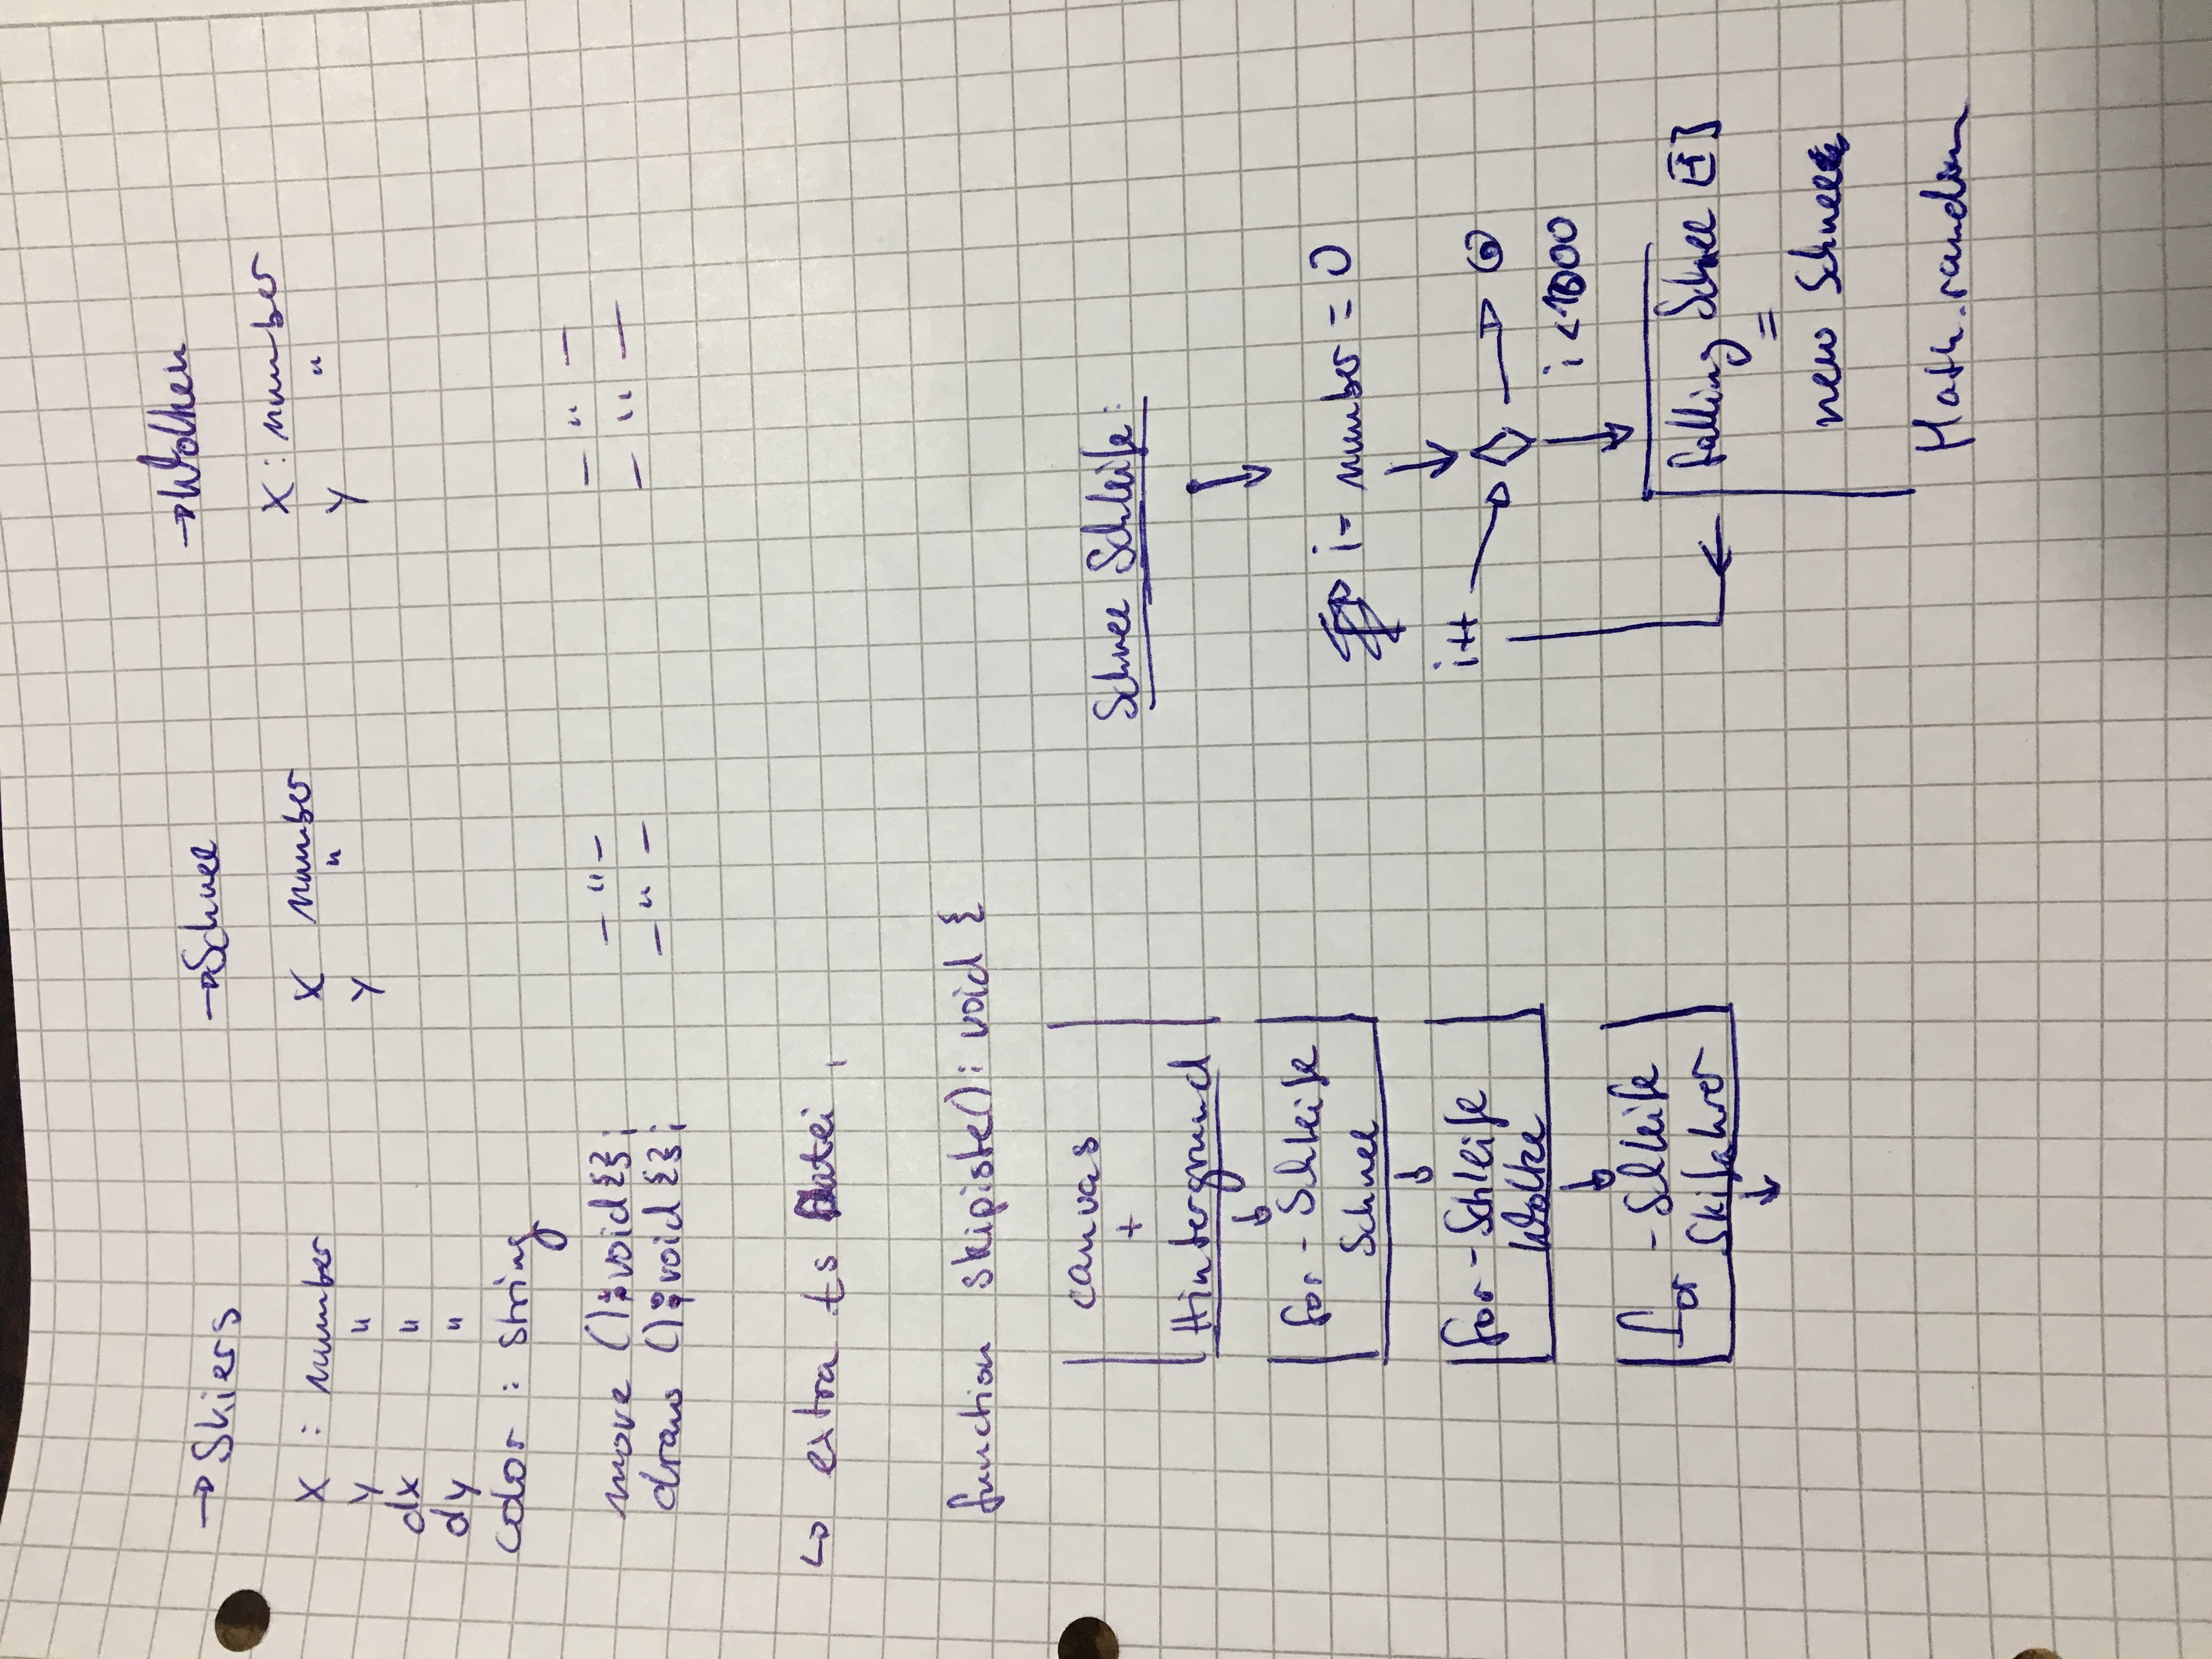 → Skiers
x : number
y "
dx "
dy "
color : string
move () : void {};
draw () : void {};
→ Schnee
x number
y "
— " —
— " —
→ Wolken
x : number
y "
— " —
— " —
↳ extra ts Datei
function skipiste(): void {
canvas
+
Hintergrund
↓
for - Schleife
Schnee
↓
for - Schleife
Wolke
↓
for - Schleife
Skifahrer
↓
Schnee Schleife:
i - number = 0
i++
i <
falling Schnee [i]
=
new Schnee
Math.random